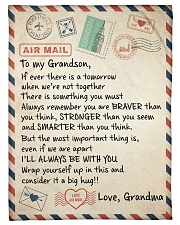 AIR MAIL
To my Grandson,
If ever there is a tomorrow
when we're not together
There is something you must
Always remember you are BRAVER than
you think, STRONGER than you seem
and SMARTER than you think.
But the most important thing is,
even if we are apart
I'LL ALWAYS BE WITH YOU
Wrap yourself up in this and
consider it a big hug!!
Love, Grandma